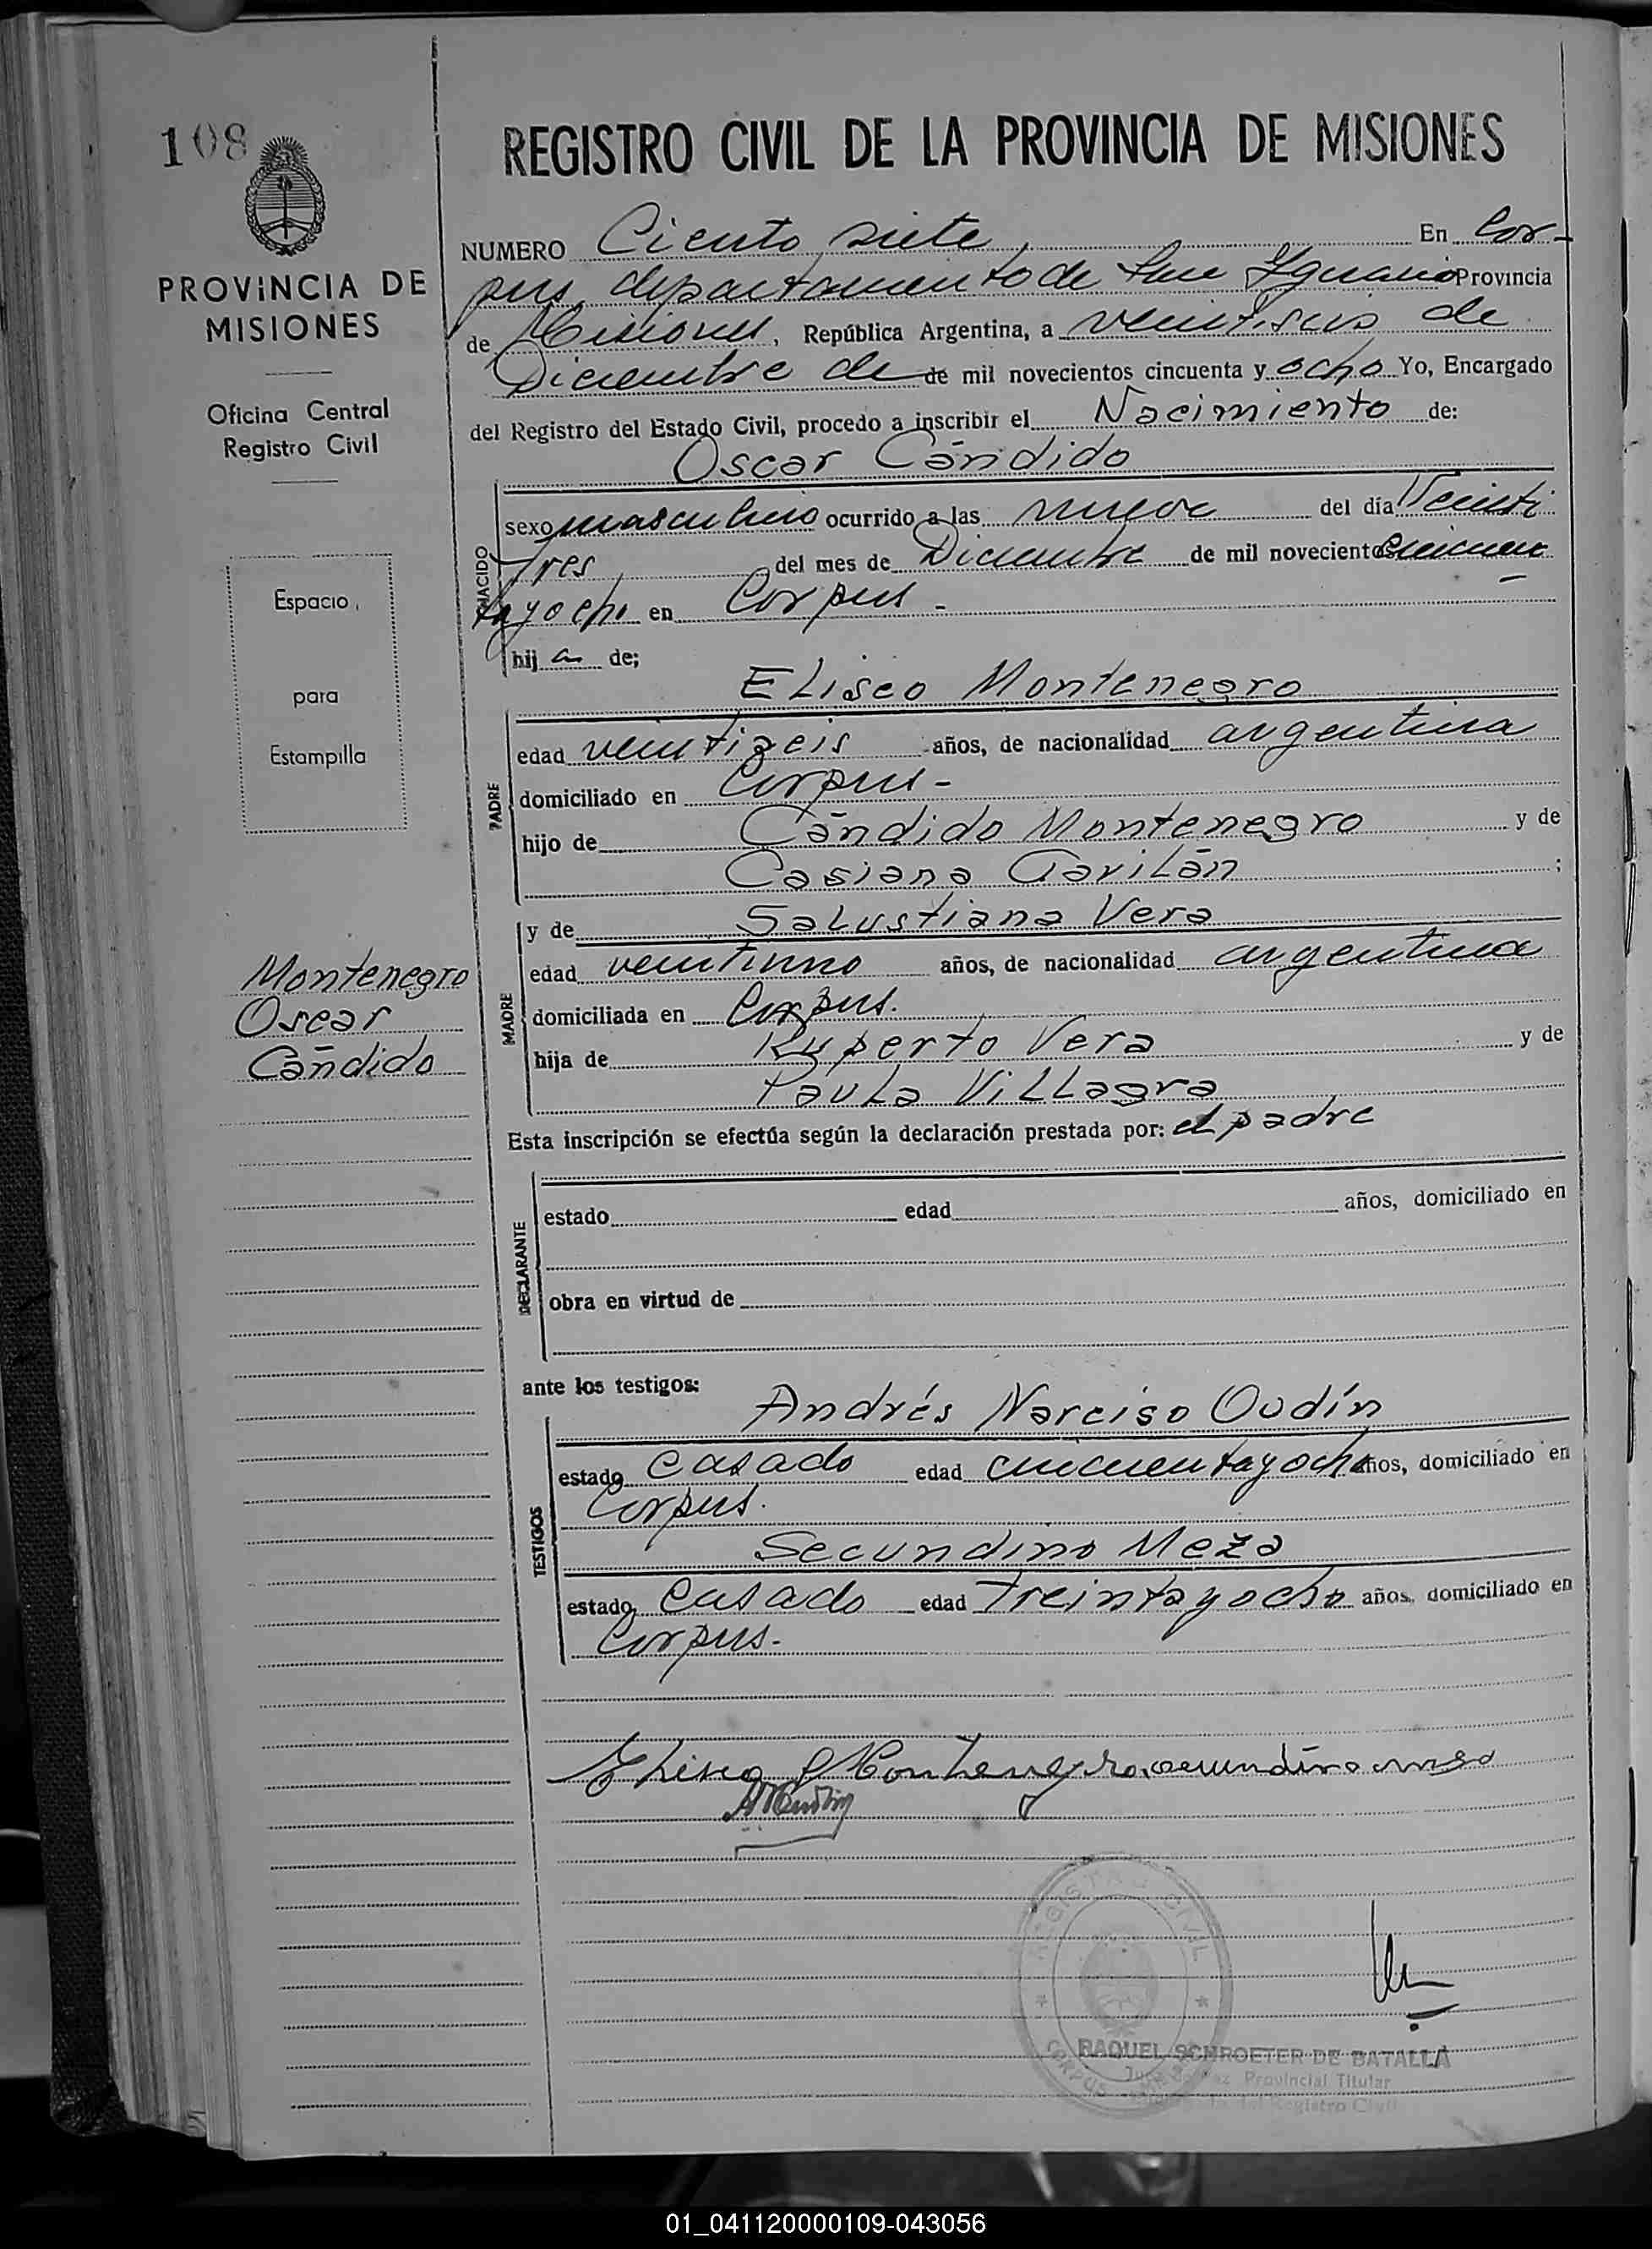 108
REGISTRO CIVIL DE LA PROVINCIA DE MISIONES
PROVINCIA DE
MISIONES
Oficina Central
Registro Civil
Espacio
para
Estampilla
Montenegro
Oscar
Cándido
NUMERO Ciento siete, En Cor-
pus, departamento de San Ygnacio Provincia
de Misiones, República Argentina, a veintiseis de
Diciembre de de mil novecientos cincuenta y ocho Yo, Encargado
del Registro del Estado Civil, procedo a inscribir el Nacimiento de:
Oscar Cándido
NACIDO
sexo masculino ocurrido a las nueve del día Veinti
Tres del mes de Diciembre de mil novecientos cincuen
tayocho en Corpus -
hij a de;
Eliseo Montenegro
PADRE
edad veintiseis años, de nacionalidad argentina
domiciliado en Corpus -
hijo de Cándido Montenegro y de
Casiana Gavilán ;
MADRE
y de Salustiana Vera
edad veintiuno años, de nacionalidad argentina
domiciliada en Corpus.
hija de Ruperto Vera y de
Paula Villagra
Esta inscripción se efectúa según la declaración prestada por: el padre
DECLARANTE
estado edad años, domiciliado en
obra en virtud de
ante los testigos:
Andrés Narciso Oudín
TESTIGOS
estado casado edad cincuentayocho años, domiciliado en
Corpus.
Secundino Meza
estado Casado edad Treintayocho años, domiciliado en
Corpus.-
Eliseo Montenegro secundino mesa
REGISTRO CIVIL
CORPUS
RAQUEL SCHROETER DE BATALLA
Juez de Paz Provincial Titular
Registro Civil
01_041120000109-043056